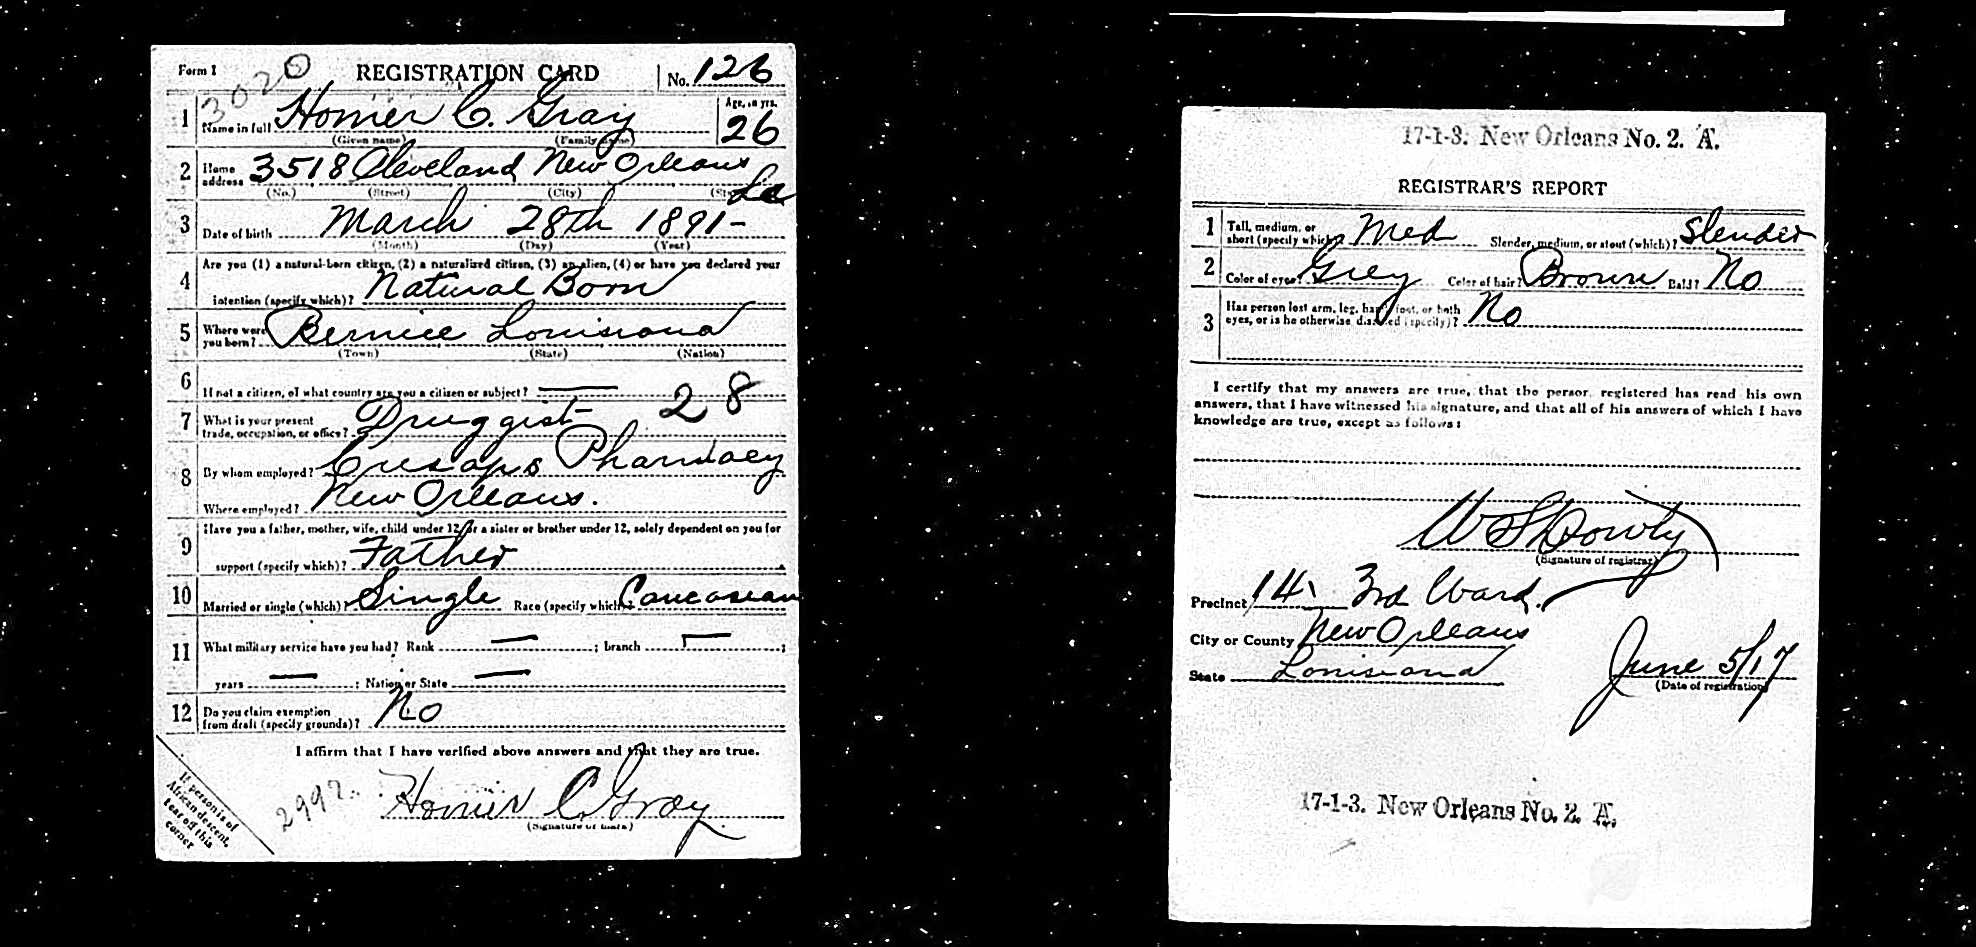 Form 1 3020 REGISTRATION CARD No. 126
1 Name in full Homer C. Gray Age, in yrs. 26
(Given name) (Family name)
2 Home address 3518 Cleveland New Orleans La
(No.) (Street) (City) (State)
3 Date of birth March 28th 1891-
(Month) (Day) (Year)
4 Are you (1) a natural-born citizen, (2) a naturalized citizen, (3) an alien, (4) or have you declared your
intention (specify which)? Natural Born
5 Where were you born? Bernice Louisiana
(Town) (State) (Nation)
6 If not a citizen, of what country are you a citizen or subject? —
7 What is your present trade, occupation, or office? Druggist 28
8 By whom employed? Cusaps Pharmacy
Where employed? New Orleans.
9 Have you a father, mother, wife, child under 12, or a sister or brother under 12, solely dependent on you for
support (specify which)? Father
10 Married or single (which)? Single Race (specify which)? Caucasian
11 What military service have you had? Rank — ; branch — ;
years — ; Nation or State —
12 Do you claim exemption from draft (specify grounds)? No
I affirm that I have verified above answers and that they are true.
2992. Homer C. Gray
(Signature or mark)
If person is of
African descent,
tear off this
corner
17-1-3. New Orleans No. 2. A.
REGISTRAR'S REPORT
1 Tall, medium, or short (specify which)? Med Slender, medium, or stout (which)? Slender
2 Color of eyes? Grey Color of hair? Brown Bald? No
3 Has person lost arm, leg, hand, foot, or both eyes, or is he otherwise disabled (specify)? No
I certify that my answers are true, that the person registered has read his own
answers, that I have witnessed his signature, and that all of his answers of which I have
knowledge are true, except as follows:
(Signature of registrar)
Precinct 14 3rd Ward.
City or County New Orleans
State Louisiana June 5/17
(Date of registration)
17-1-3. New Orleans No. 2. A.